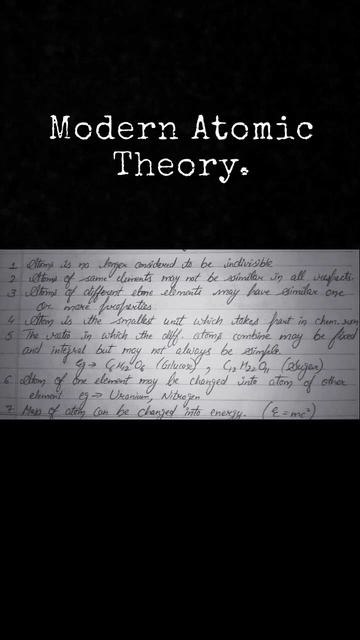 Modern Atomic
Theory.
1 Atoms is no longer considered to be indivisible
2 Atoms of same elements may not be similar in all respects.
3 Atoms of different elements may have similar one
or more properties
4 Atom is the smallest unit which takes part in chem.
5 The ratio in which the diff. atoms combine may be fixed
and integral but may not always be simple.
Eg → C6H12O6 (Glucose) , C12H22O11 (Sugar)
6 Atom of one element may be changed into atom of other
element eg → Uranium, Nitrogen
7. Mass of atom can be changed into energy. (E = mc²)